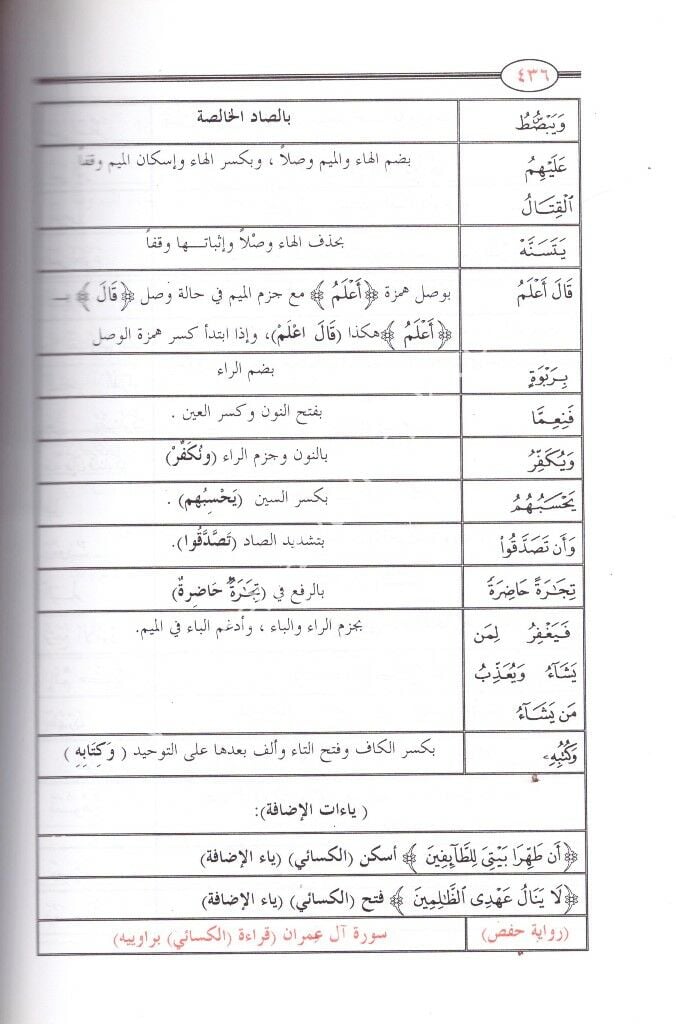 ٤٣٦
وَيَبْصُۜطُ بالصاد الخالصة
عَلَيْهِمُ بضم الهاء والميم وصلاً ، وبكسر الهاء وإسكان الميم وقفاً
ٱلْقِتَالُ
يَتَسَنَّهْ بحذف الهاء وصْلاً وإثباتـــها وقفاً
قَالَ أَعْلَمُ بوصل همزة ﴿أَعْلَمُ﴾ مع جزم الميم في حالة وصل ﴿قَالَ﴾ بـــ
﴿أَعْلَمُ﴾ هكذا (قَالَ اعْلَمْ)، وإذا ابتدأ كسر همزة الوصل
بِرَبْوَةٍ بضم الراء
فَنِعِمَّا بفتح النون وكسر العين .
وَيُكَفِّرُ بالنون وجزم الراء (ونُكَفِّرْ)
يَحْسَبُهُمُ بكسر السين (يَحْسِبُهم) .
وَأَن تَصَدَّقُواْ بتشديد الصاد (تَصَّدَّقُوا).
تِجَـٰرَةً حَاضِرَةً بالرفع في (تِجَـٰرَةٌ حَاضِرةٌ)
فَيَغْفِرُ لِمَن بجزم الراء والباء ، وأدغم الباء في الميم.
يَشَآءُ وَيُعَذِّبُ
مَن يَشَآءُ
وَكُتُبِهِۦ بكسر الكاف وفتح التاء وألف بعدها على التوحيد ( وَكِتَابِهِ )
( ياءات الإضافة):
﴿أَن طَهِّرَا بَيْتِىَ لِلطَّآئِفِينَ﴾ أسكن (الكسائي) (ياء الإضافة)
﴿لَا يَنَالُ عَهْدِى ٱلظَّـٰلِمِينَ﴾ فتح (الكسائي) (ياء الإضافة)
(رواية حفص) سورة آل عِمران (قراءة (الكسائي) براوييه)